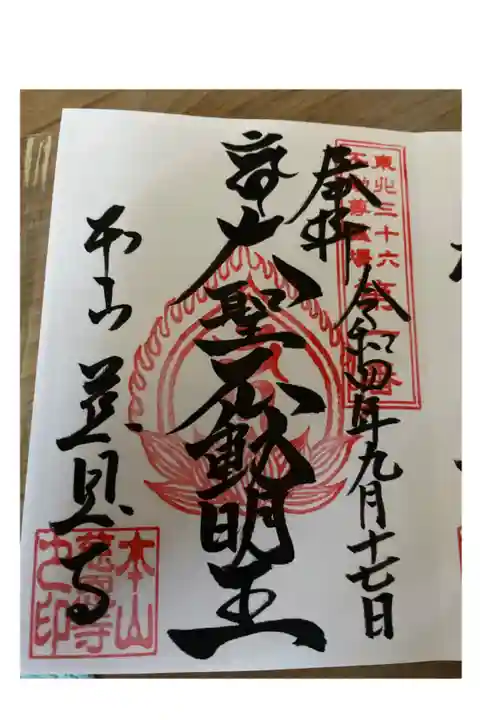 東北三十六
不動尊霊場
第一番
奉拝
令和四年九月十七日
大聖不動明王
本山 慈恩寺
本山
慈恩寺
之印